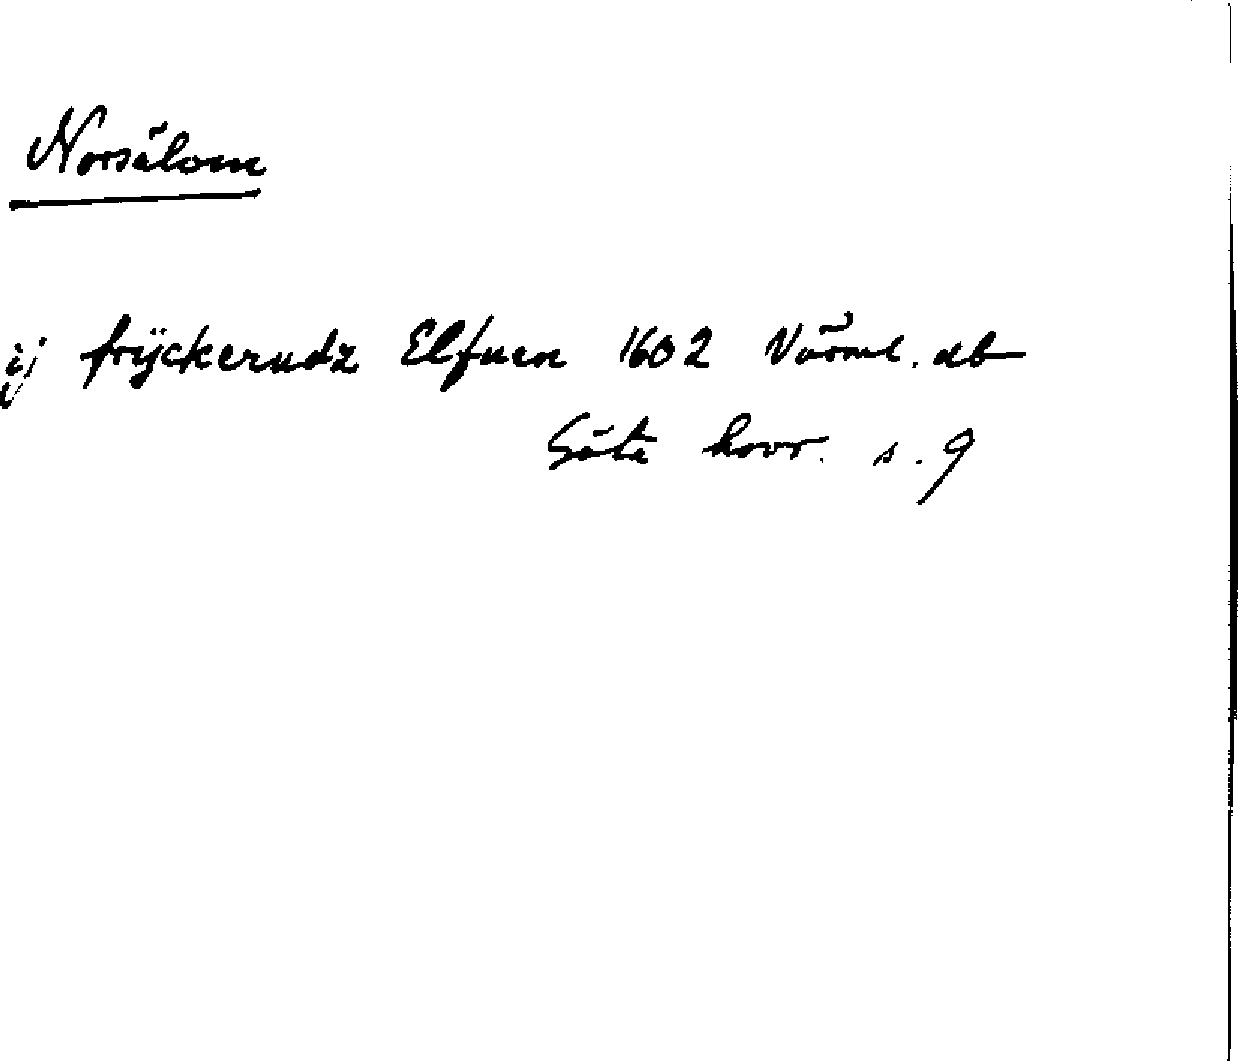 Norsälom
ij frÿckerudz Elfuen 1602 Värml. db
Göta hovr. s. 9